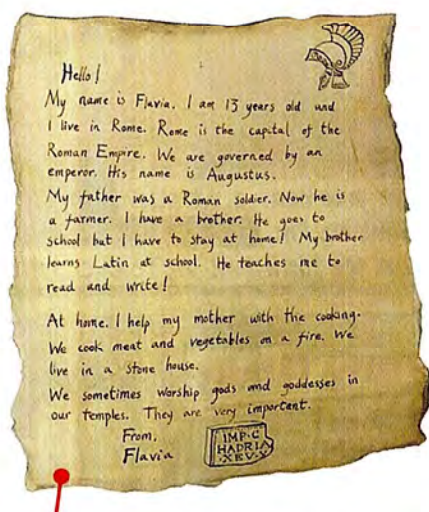 Hello!
My name is Flavia. I am 13 years old and
I live in Rome. Rome is the capital of the
Roman Empire. We are governed by an
emperor. His name is Augustus.
My father was a Roman soldier. Now he is
a farmer. I have a brother. He goes to
school but I have to stay at home! My brother
learns Latin at school. He teaches me to
read and write!
At home, I help my mother with the cooking.
We cook meat and vegetables on a fire. We
live in a stone house.
We sometimes worship gods and goddesses in
our temples. They are very important.
From,
Flavia
IMP·C
HADRIA
·XEV·X